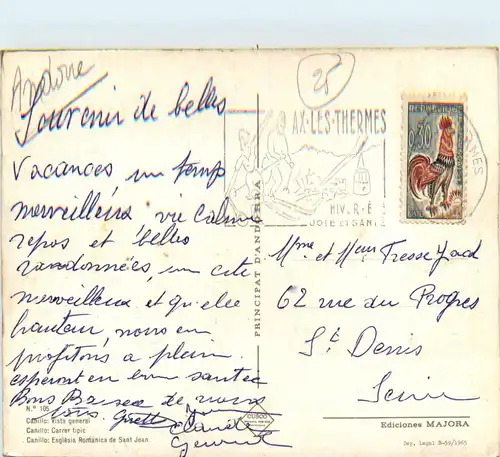 Andorre
25
Souvenir de belles
vacances un temps
merveilleux vie calme
repos et belles
randonnées, un site
merveilleux et quelle
hauteur, nous en
profitons a plein
esperont en bon santée
Bons Baisers de nous
tous. Ginette
Claude
AX-LES-THERMES
HIVER-É
JOIE ET SANT
REPUBLIQUE
0,30
PRINCIPAT D'ANDORRA
Mme et Meur Tresse Jacq
62 rue du Progres
St Denis
Seine
N.° 105
Canillo: Vista general
Canillo: Carrer típic
Canillo: Església Romànica de Sant Joan
Ediciones MAJORA
Dep. Legal B-59/1965